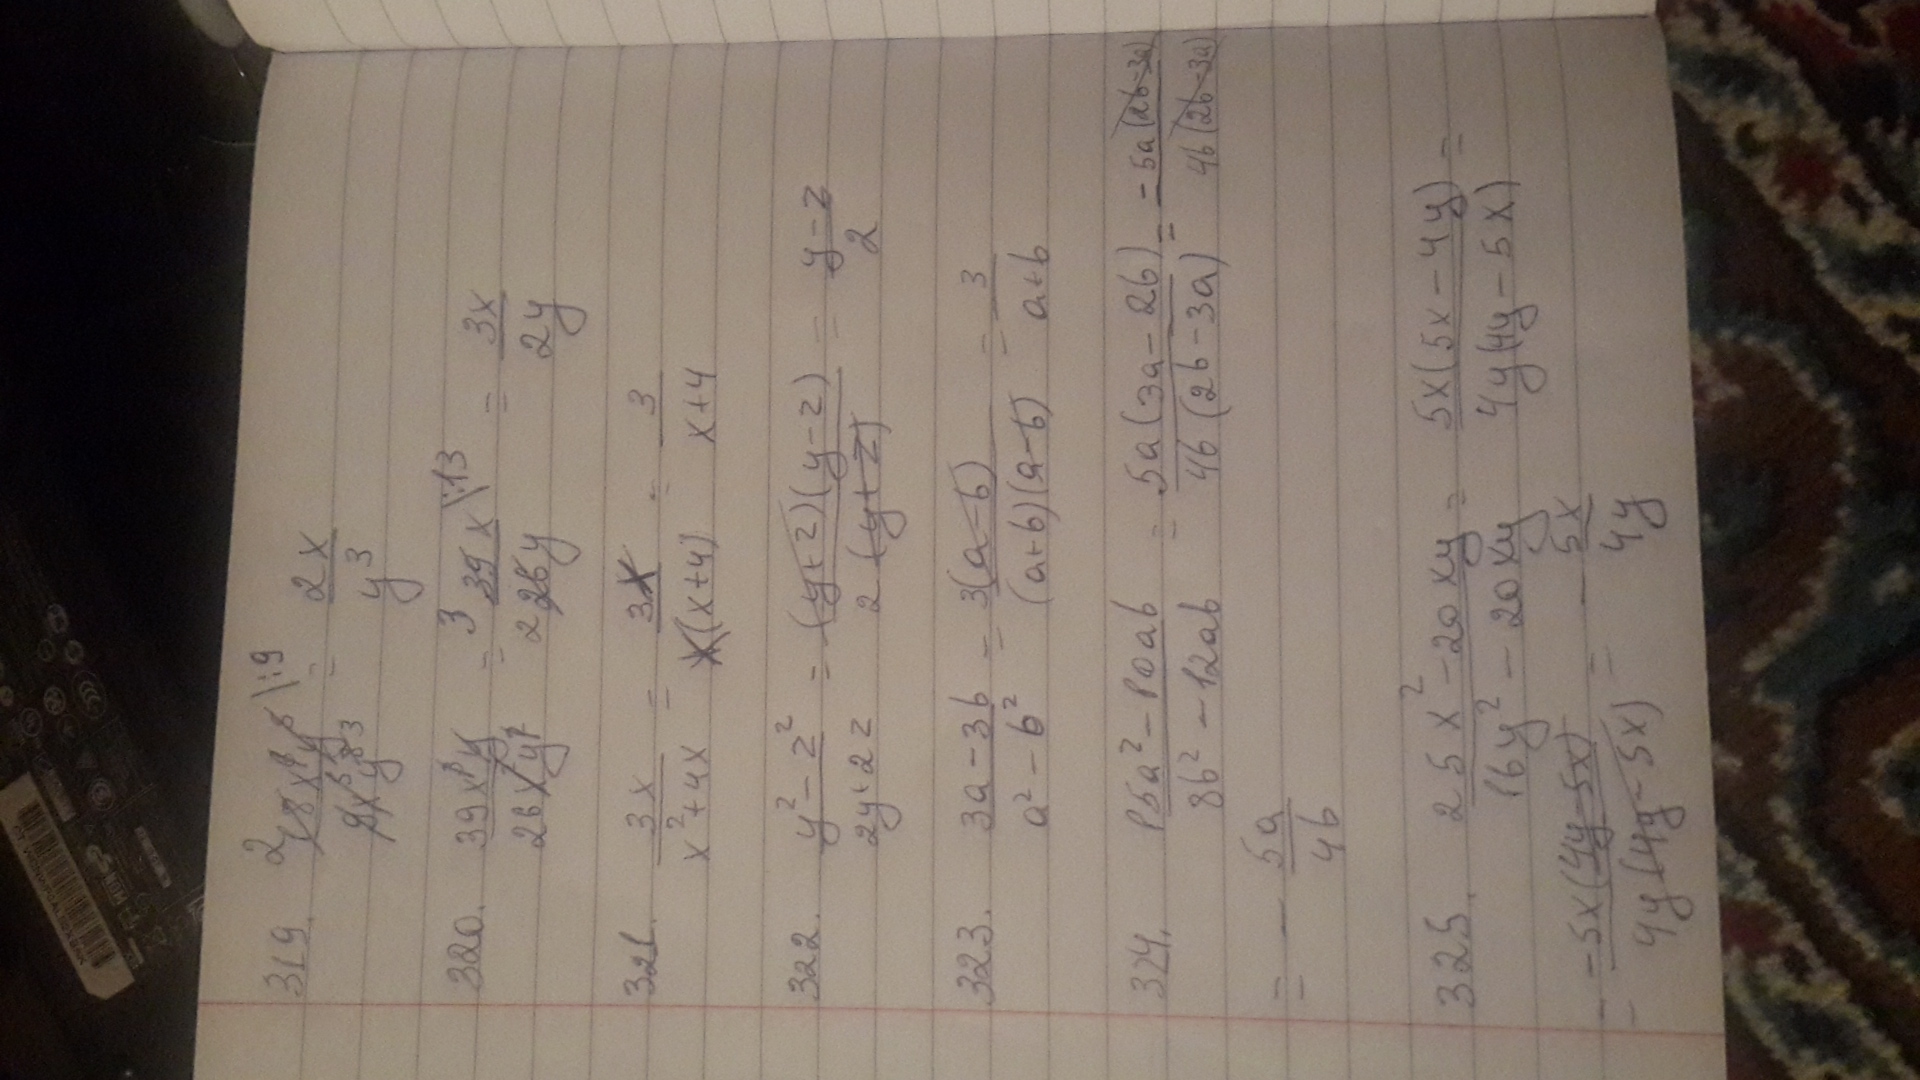 319. 18x⁴y⁵ \:9 / 9x³y⁸ = 2x / y³
320. 39x⁴y / 26xy² = 39x \:13 / 26y = 3x / 2y
321. 3x / x²+4x = 3x / x(x+4) = 3 / x+4
322. y²-z² / 2y+2z = (y+z)(y-z) / 2(y+z) = y-z / 2
323. 3a-3b / a²-b² = 3(a-b) / (a+b)(a-b) = 3 / a+b
324. 15a²-10ab / 8b²-12ab = 5a(3a-2b) / 4b(2b-3a) = -5a(2b-3a) / 4b(2b-3a)
= - 5a / 4b
325. 25x²-20xy / 16y²-20xy = 5x(5x-4y) / 4y(4y-5x) =
= -5x(4y-5x) / 4y(4y-5x) = - 5x / 4y